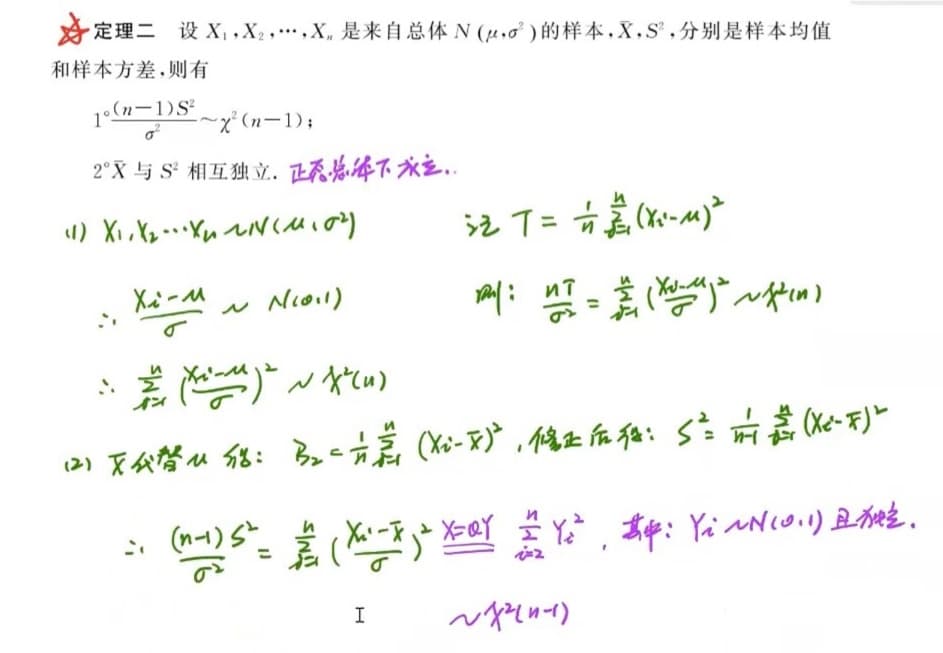 定理二 设 X₁,X₂,…,Xₙ 是来自总体 N(μ,σ²)的样本,X̄,S²,分别是样本均值
和样本方差,则有
1° (n−1)S²/σ² ~ χ²(n−1);
2° X̄ 与 S² 相互独立. 正态总体下成立.
(1) X₁,X₂…Xₙ ~ N(μ,σ²) 记 T = 1/n ∑ᵢ₌₁ⁿ (Xᵢ−μ)²
∴ (Xᵢ−μ)/σ ~ N(0,1) 则: nT/σ² = ∑ᵢ₌₁ⁿ ((Xᵢ−μ)/σ)² ~ χ²(n)
∴ ∑ᵢ₌₁ⁿ ((Xᵢ−μ)/σ)² ~ χ²(n)
(2) X̄代替μ 得: B₂ = 1/n ∑ᵢ₌₁ⁿ (Xᵢ−X̄)², 修正后得: S² = 1/(n-1) ∑ᵢ₌₁ⁿ (Xᵢ−X̄)²
∴ (n-1)S²/σ² = ∑ᵢ₌₁ⁿ ((Xᵢ−X̄)/σ)² X=QY ∑ᵢ₌₂ⁿ Yᵢ², 其中: Yᵢ ~ N(0,1) 且独立.
~ χ²(n-1)